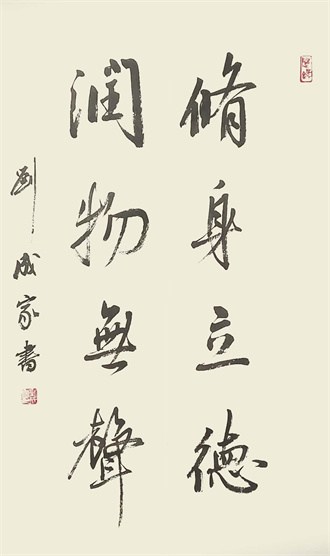 脩身立德
潤物無聲
劉成家書